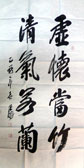 虛懷當竹
清氣若蘭